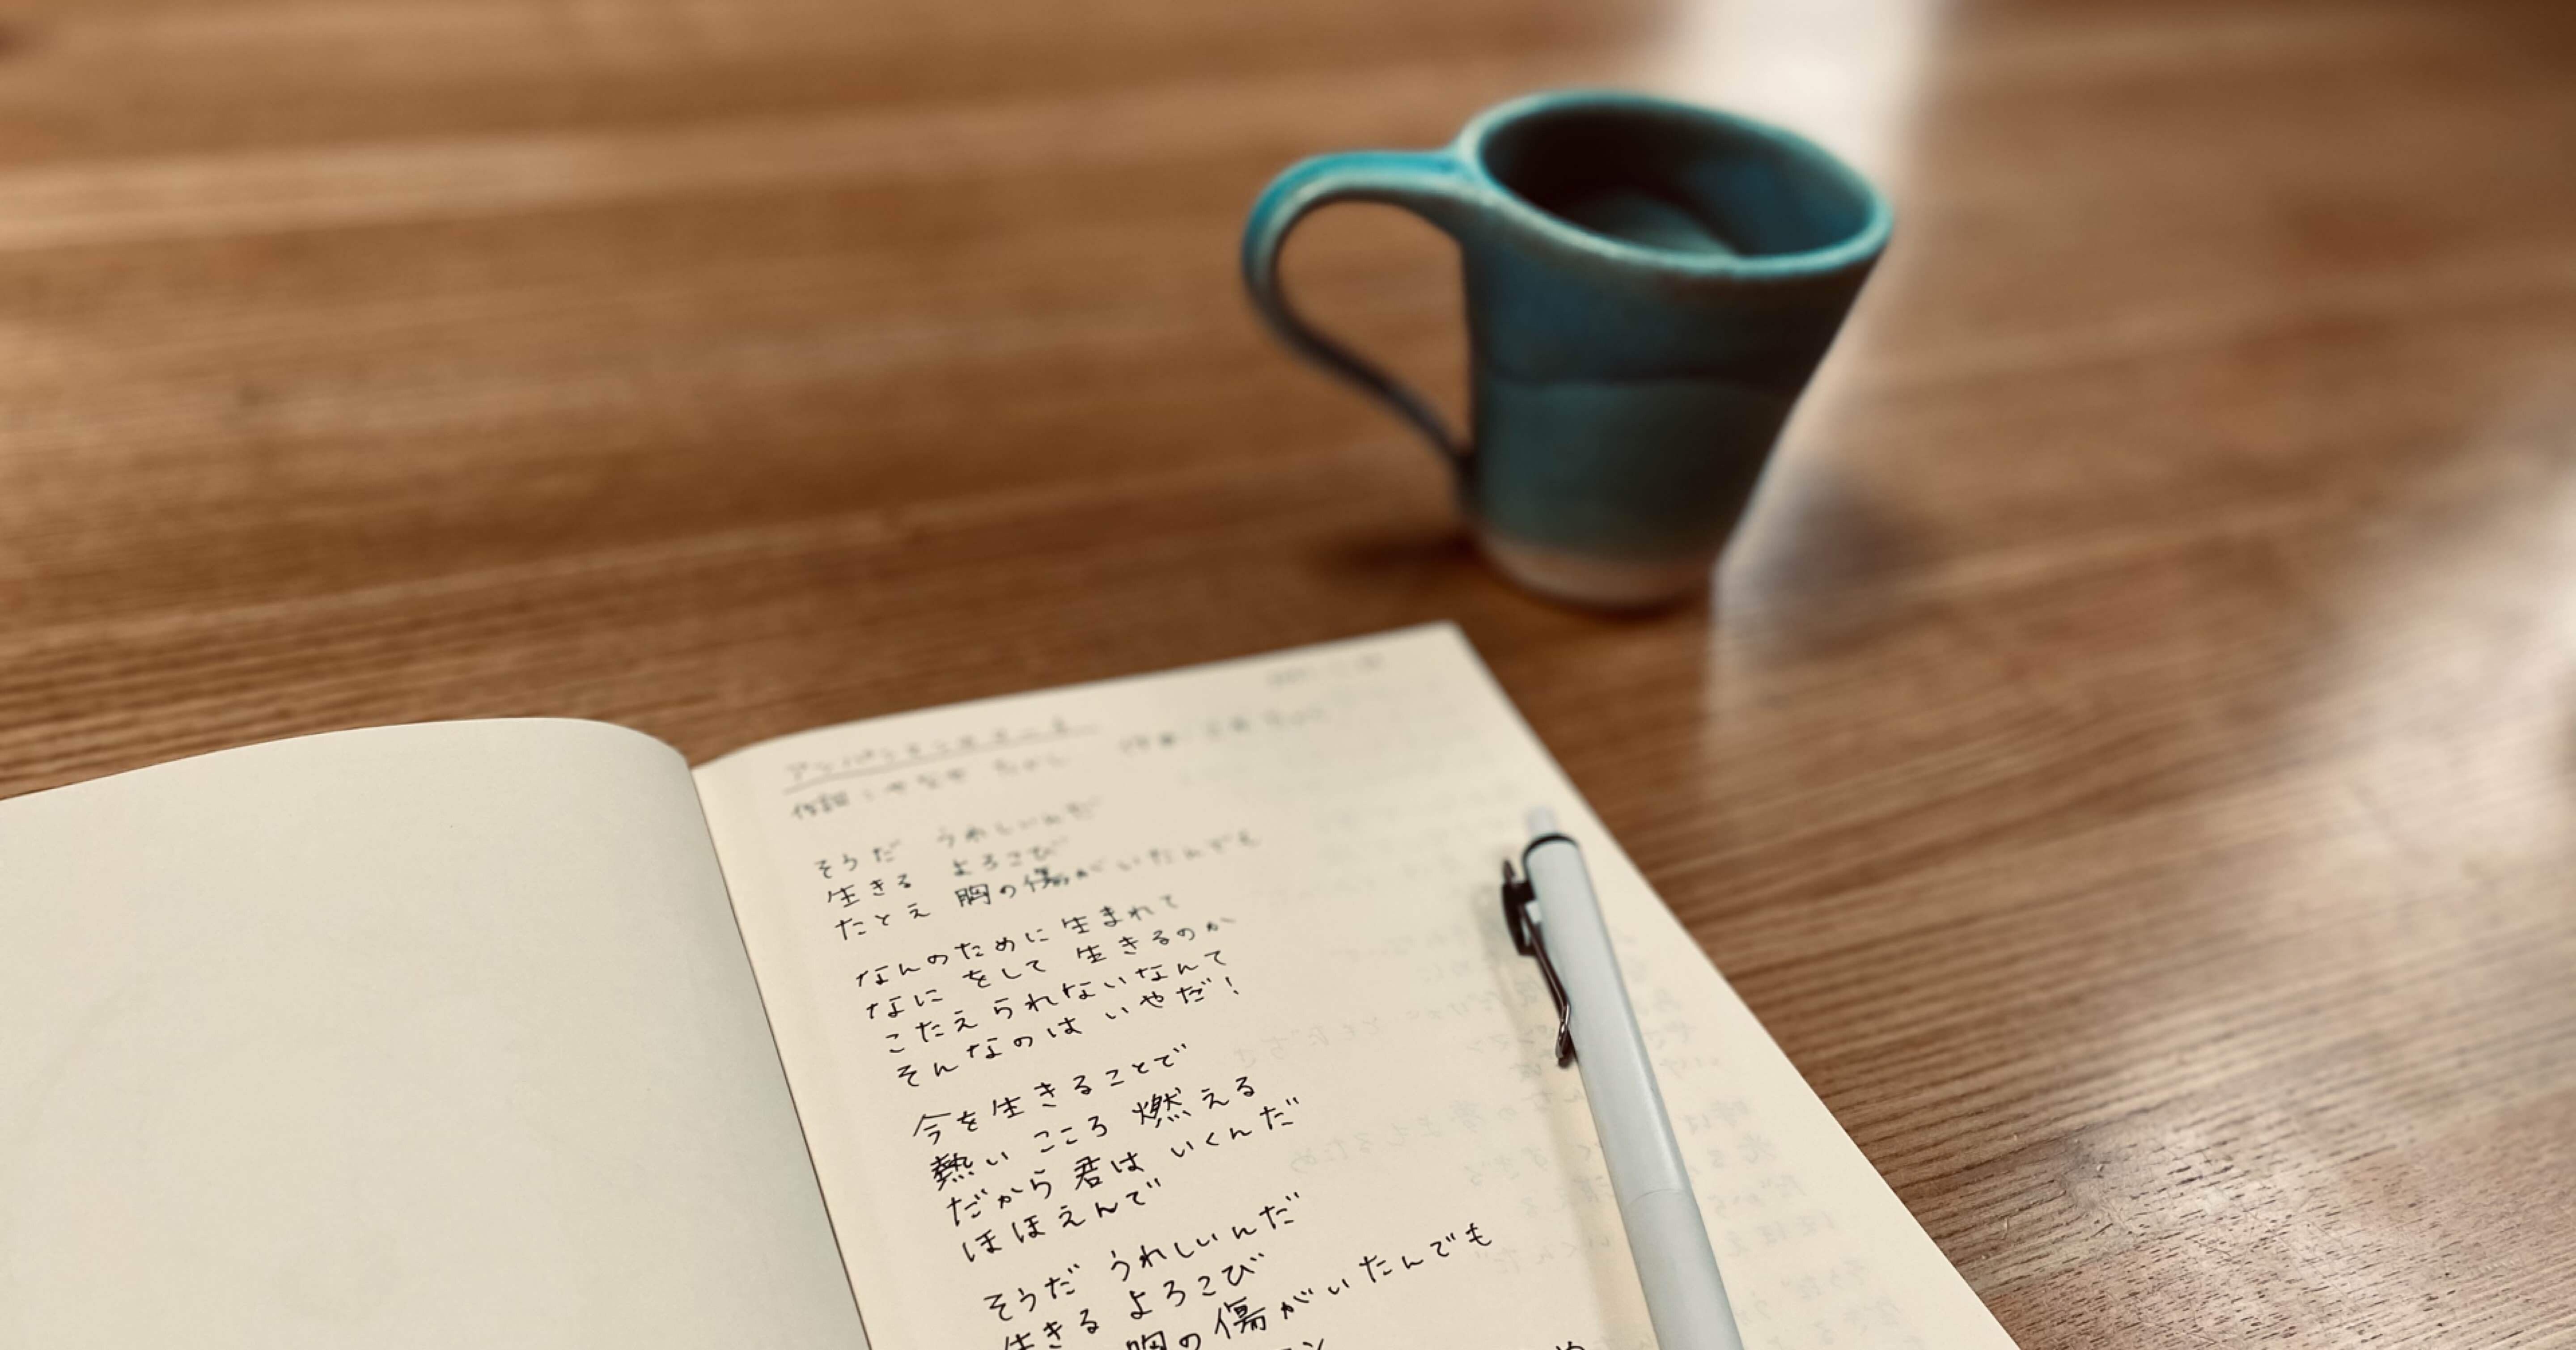 アンパンマンマーチ
作詞：やなせ たかし 作曲：三木 たかし
そうだ うれしいんだ
生きる よろこび
たとえ 胸の傷がいたんでも
なんのために 生まれて
なに をして 生きるのか
こたえられないなんて
そんなのは いやだ！
今を生きることで
熱い こころ 燃える
だから 君は いくんだ
ほほえんで
そうだ うれしいんだ
生きる よろこび
胸の傷がいたんでも